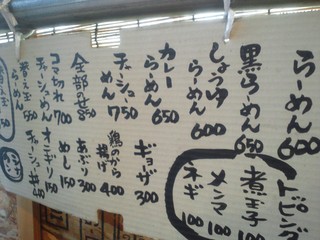 らーめん 600
黒らーめん 650
しょうゆらーめん 600
カレーらーめん 650
チャーシューめん 750
全部のせ 850
コマ切れチャーシューめん 700
替え玉らーめん 550
トッピング
煮玉子 100
メンマ 100
ネギ 100
ギョウザ 300
鶏のから揚げ 400
あぶり 300
めし 150
オニギリ 150
チャーシュ丼